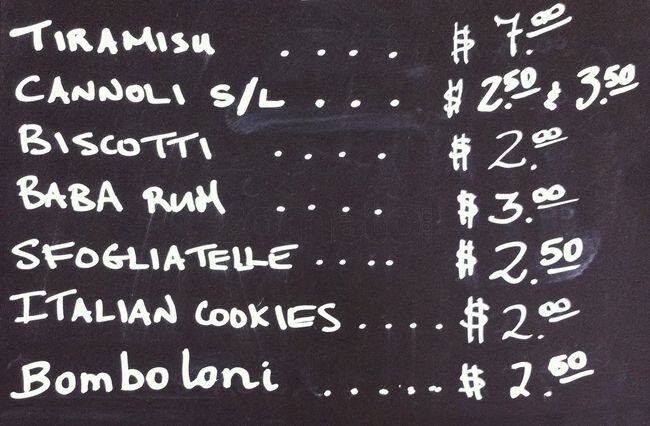 TIRAMISU .... $ 7.00
CANNOLI S/L ... $ 2.50 & 3.50
BISCOTTI .... $ 2.00
BABA RUM .... $ 3.00
SFOGLIATELLE .... $ 2.50
ITALIAN COOKIES ..... $ 2.00
Bomboloni ...... $ 2.50